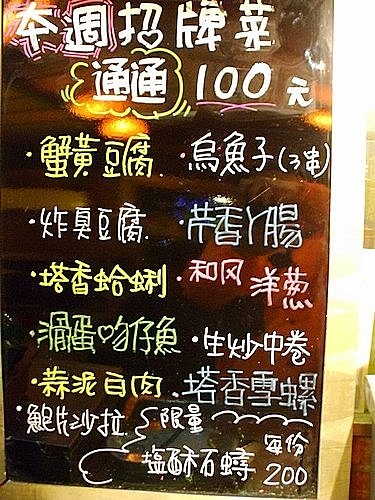 本週招牌菜
通通 100 元
·蟹黃豆腐 ·烏魚子(3串)
·炸臭豆腐 ·芹香丫腸
·塔香蛤蜊 ·和风洋葱
·滑蛋吻仔魚 ·生炒中卷
·蒜泥白肉 ·塔香雪螺
·鮑片沙拉 限量
塩酥石蟳 每份200